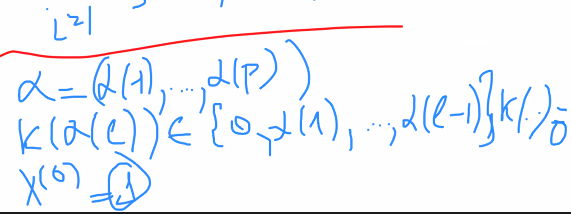 α = (α(1), ..., α(p))
k(α(ℓ)) ∈ {0, α(1), ..., α(ℓ-1)} k(·)=0
X^(0) = 1